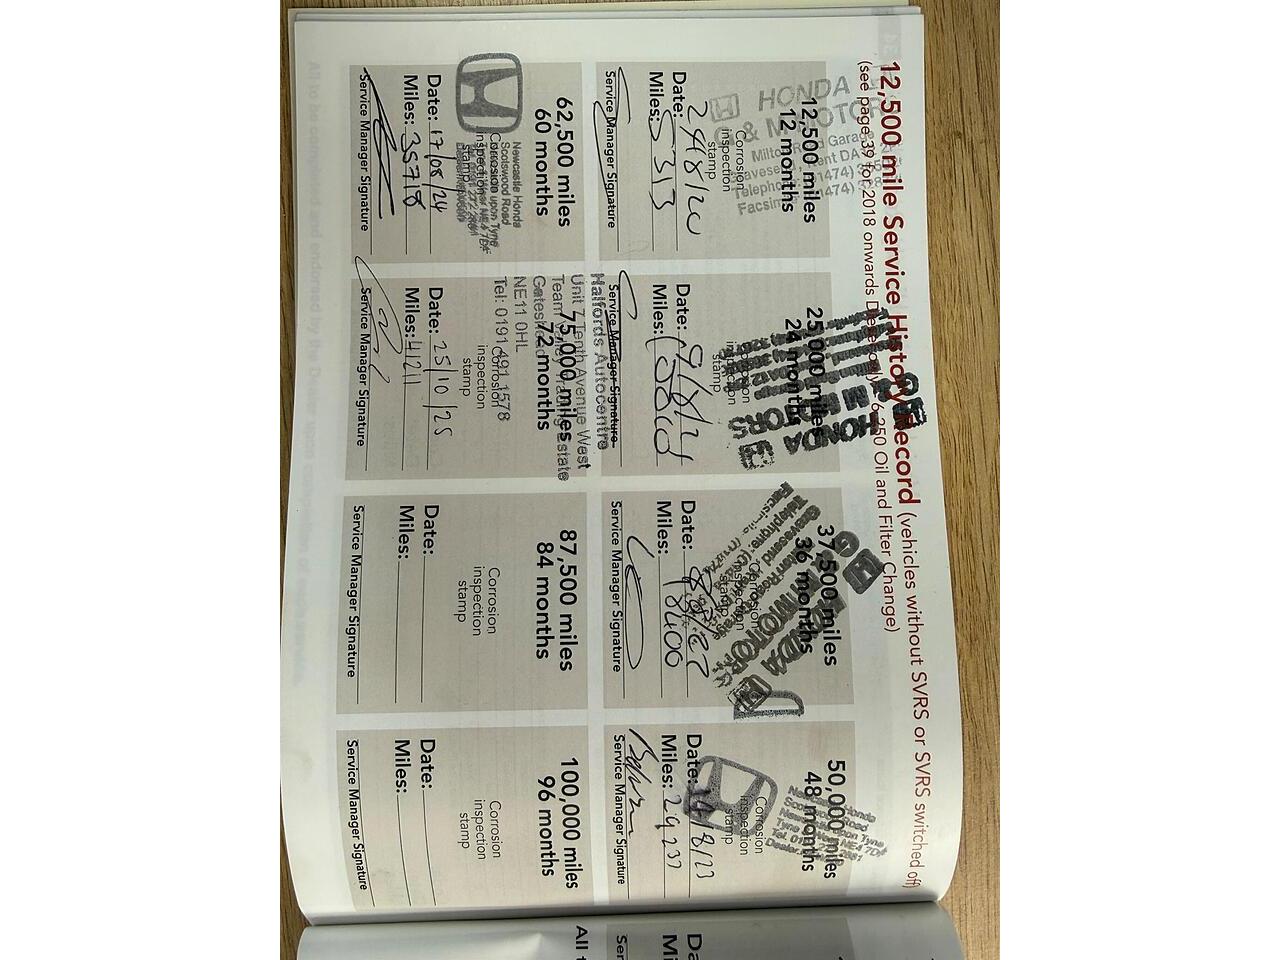 12,500 mile Service History Record (vehicles without SVRS or SVRS switched off)
(see page 39 for 2018 onwards Diesel only 6,250 Oil and Filter Change)
HONDA
& M MOTOR
12,500 miles
12 months
Corrosion
inspection
stamp
Date: 24/8/20
Miles: 5313
Service Manager Signature
25,000 miles
24 months
HONDA
MOTORS
inspection
stamp
Date: 9/8/21
Miles:
Service Manager Signature
37,500 miles
36 months
HONDA
MOTOR
Corrosion
inspection
stamp
Date:
Miles: 18400
Service Manager Signature
50,000 miles
48 months
Newcastle Honda
Scotswood Road
Newcastle upon Tyne
Tyne & Wear NE4 7DF
Corrosion
inspection
stamp
Date: 14/8/23
Miles: 29237
Service Manager Signature
62,500 miles
60 months
Newcastle Honda
Scotswood Road
Corrosion
inspection
stamp
Date: 17/08/24
Miles: 35718
Service Manager Signature
Halfords Autocentre
Unit 7 Tenth Avenue West
Team Valley Trading Estate
Gateshead
NE11 0HL
Tel: 0191 491 1578
75,000 miles
72 months
Corrosion
inspection
stamp
Date: 25/10/25
Miles: 41211
Service Manager Signature
87,500 miles
84 months
Corrosion
inspection
stamp
Date:
Miles:
Service Manager Signature
100,000 miles
96 months
Corrosion
inspection
stamp
Date:
Miles:
Service Manager Signature